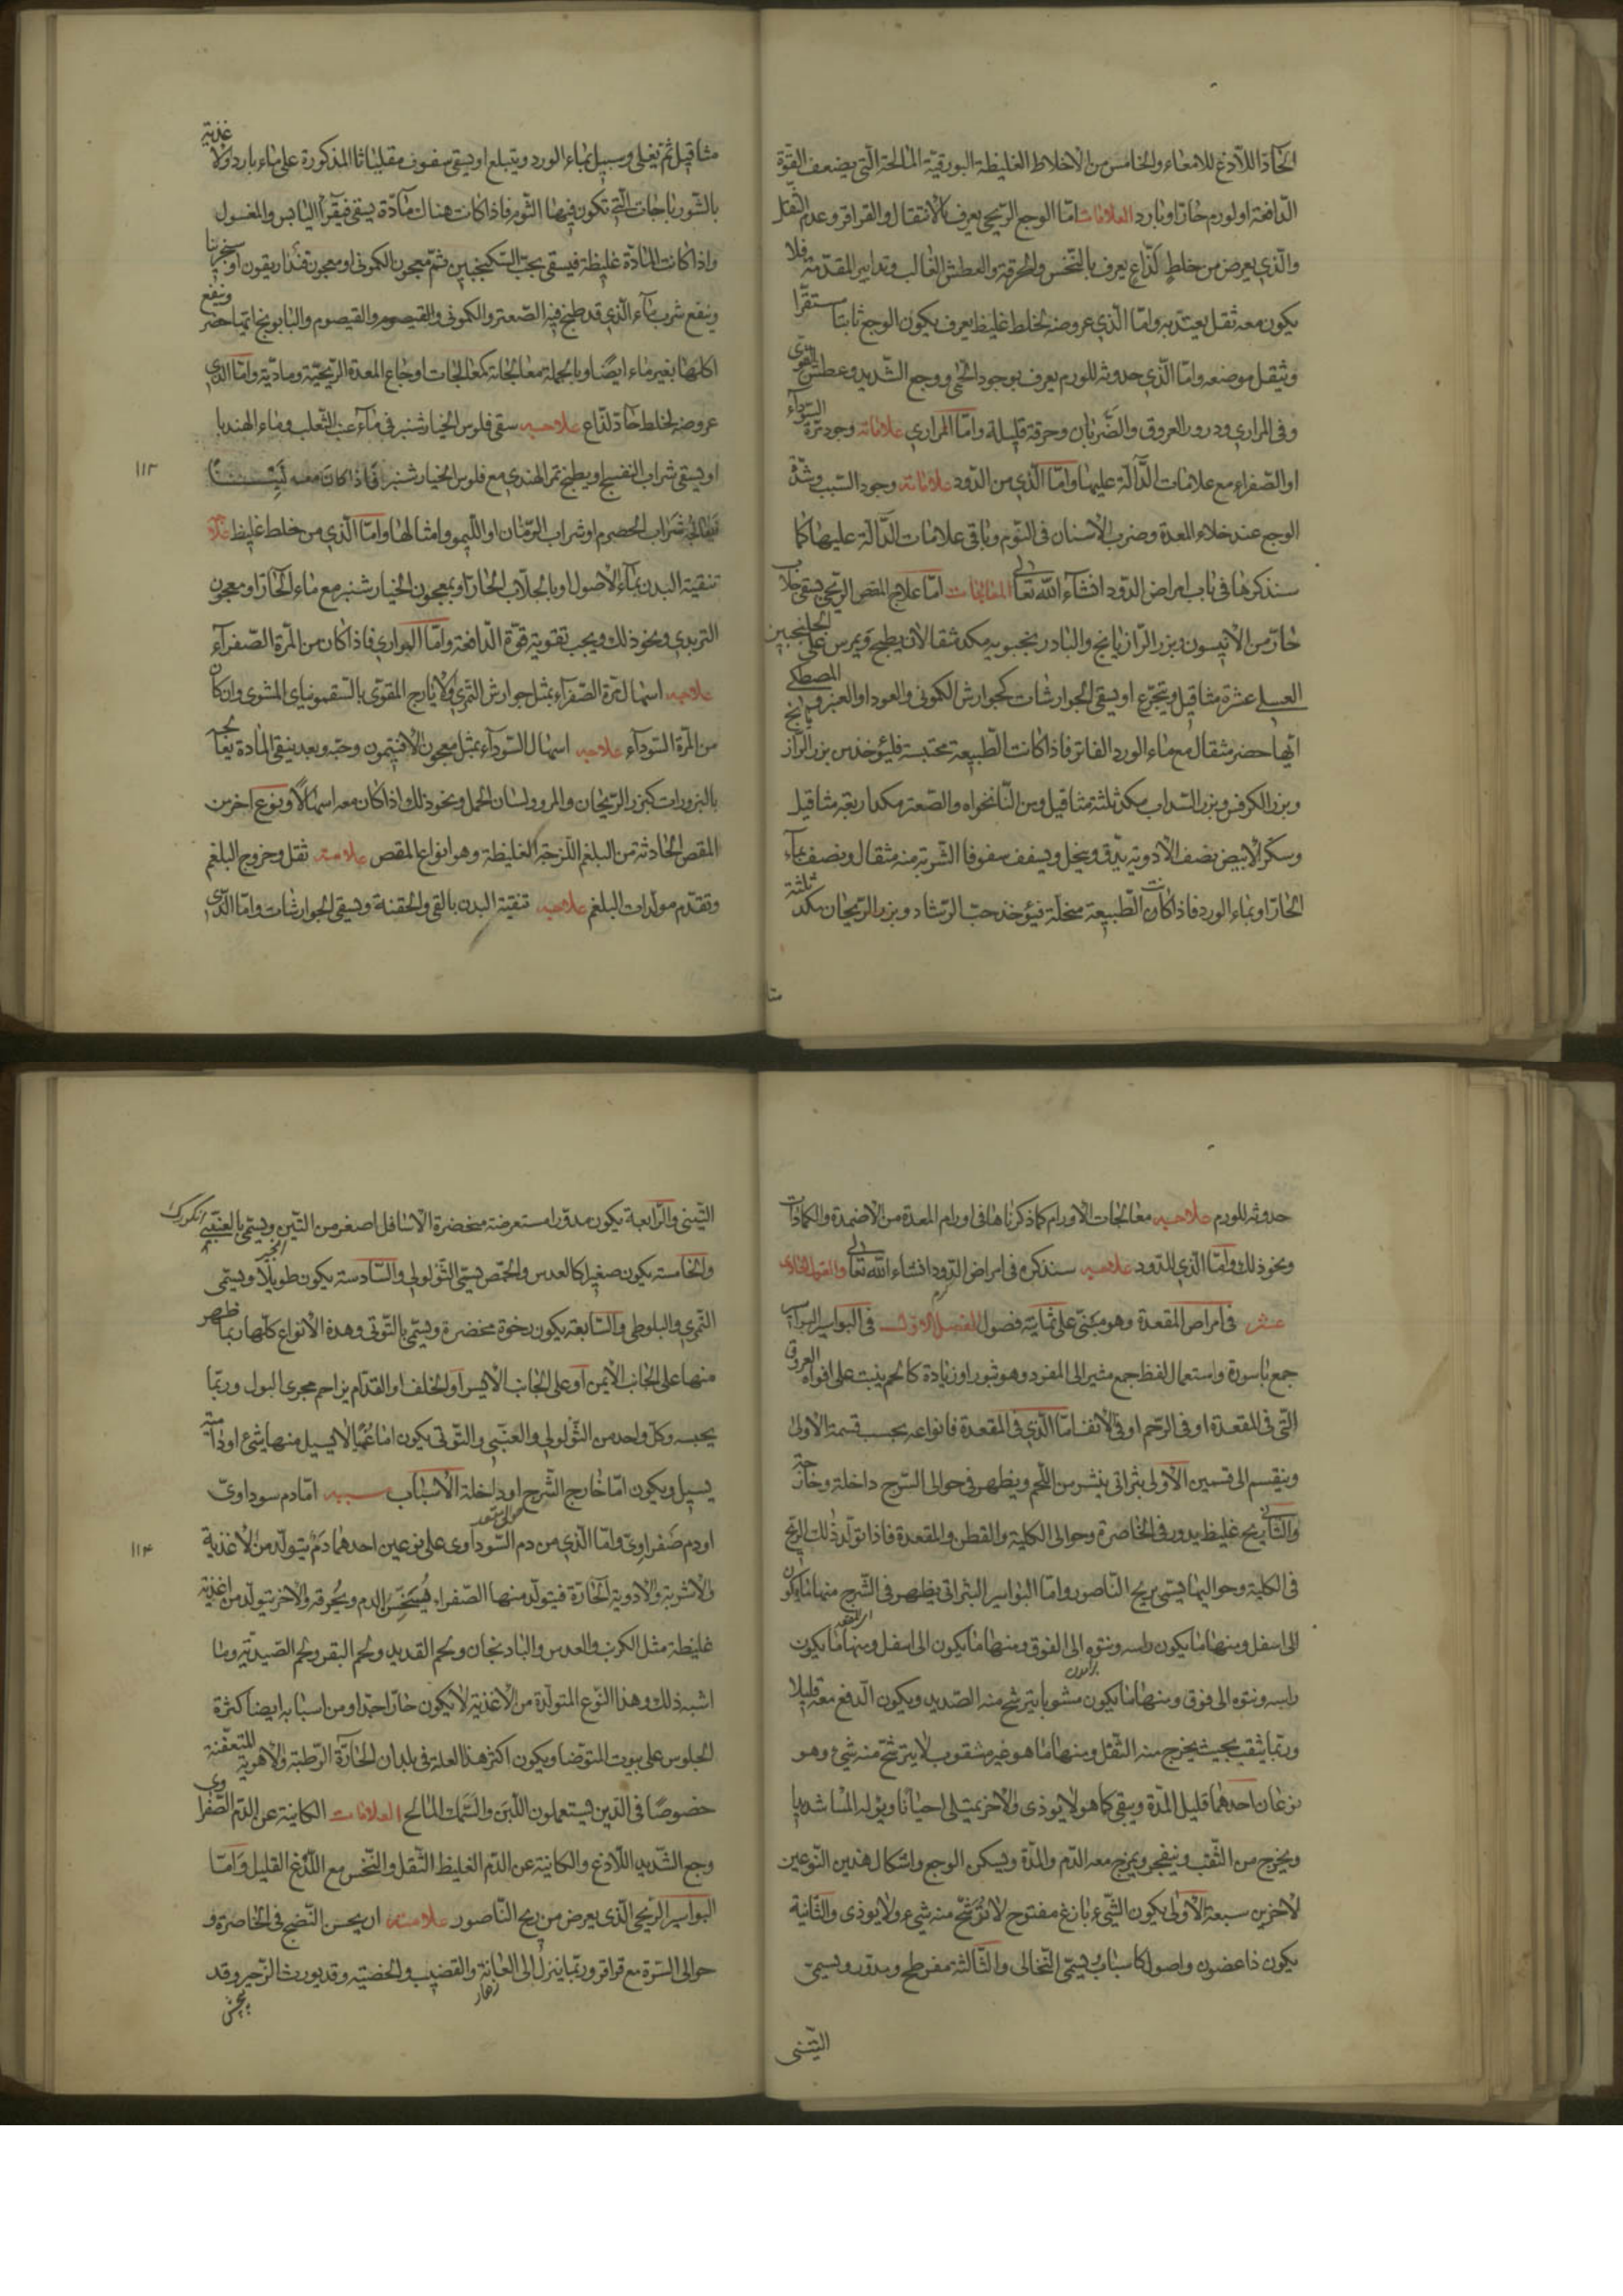 الحادّ اللاذع للامعاء والخامس من الاخلاط الغليظة البورقيّة المالحة الّتي يضعف القوّة
الدافعة او لورم حار او بارد العلامات امّا الوجع الريحي يعرف بالانتقال والقراقر وعدم الثقل
والّذي يعرض من خلط لذّاع يعرف بالنخس والحرقة والعطش الغالب وتدابير المقدّمة فلا
يكون معه ثقل يعتدّ به وامّا الّذي عروضه لخلط غليظ يعرف بكون الوجع ثابتا مستقرّا
وثقيل موضعه وامّا الّذي حدوثه للورم يعرف بوجود الحمّى ووجع الشديد وعطش القوى
وفى المراري ودرور العروق والضربان وحرقة قليلة وامّا المراري علاماته وجود مرّة السوداء
او الصّفراء مع علامات الدّالّة عليها وامّا الّذي من الدّود علاماته وجود السبب وشدّة
الوجع عند خلاء المعدة وضرب الاسنان فى النّوم وباقى علامات الدّالّة عليها كما
سنذكرها فى باب امراض الدّود انشاء الله تعالى المعالجات امّا علاج المغص الريحي يسقى جلاب
حارّ من الانيسون وبزر الرازيانج والبادرنجبويه مكد مثقالان يطبخ ويمرس على الجلنجبين
العسلي عشرة مثاقيل ويتجرّع او يسقى الجوارشات كجوارش الكمونى والعود او العنبر والمصطكى
ايّها حضر مثقال مع ماء الورد الفاتر فاذا كانت الطبيعة محتبسة فليؤخذ من بزر الرازيانج
وبزر الكرفس وبزر السداب مكد ثلثة مثاقيل ومن النانخواه والصّعتر مكد اربعة مثاقيل
وسكّر الابيض نصف الادوية يدقّ وينخل ويسفف سفوفا الشّربة منه مثقال ونصف بماء
الحارّ او بماء الورد فاذا كانت الطبيعة منحلّة فيؤخذ حبّ الرشاد وبزر الريحان مكد ثلثة
مثا
مثاقيل ثم تغلى وسبيل بماء الورد ويتبلع او يسقى سفوف مقلياثا المذكورة على ماء بارد ولا غذية
بالشورباجات الّتي تكون فيها الثوم فاذا كانت هنالك مادّة يسقى فيقرا اليابس والمغسول
واذا كانت المادّة غليظة فيسقى بحبّ السكبنجبين ثمّ معجون الكمونى او معجون تفداريقون او سجزينا
وينفع شرب ماء الّذي قد طبخ فيه الصّعتر والكمونى والقيصوم والقيصوم والبابونج ايّما حضر وينفع
اكلها بغير ماء ايضًا وبالجملة معالجاته كمعالجات اوجاع المعدة الريحيّة وماديّة وامّا الّذي
عروضه لخلط حادّ لذّاع علاجه سقى فلوس الخيارشنبر فى ماء عنب الثعلب وماء الهندبا
او يسقى شراب النفسج او يطبخ تمر الهندي مع فلوس الخيارشنبر فاذا كان معه
شراب الحصرم او شراب الرّمّان او اللّيمو وامثالها وامّا الّذي من خلط غليظ علاجه
تنقية البدن بماء الاصول او بالجلّاب الحارّ او بمعجون الخيارشنبر مع ماء الحارّ او معجون
التربدي ونحو ذلك ويجب تقوية قوّة الدّافعة وامّا المراري فاذا كان من المرّة الصّفراء
علاجه اسهال مرّة الصّفراء بمثل جوارش التمري ولايارج المقوّى بالسقمونياى المشوى وان كان
من المرّة السوداء علاجه اسهال السّوداء بمثل معجون الافتيمون وحبّه وبعد ينقى المادة يعالج
بالبزورات كبزر الريحان والمرو ولسان الحمل ونحو ذلك واذا كان معه اسهالاً ونوع اخر من
المغص الحادثة من البلغم اللزجة الغليظة وهو انواع المغص علامته ثقل وخروج البلغم
وتقدّم مولدات البلغم علاجه تنقية البدن بالقي والحقنة ويسقى الجوارشات وامّا الّذي
١١٣
حدوثه للورم علاجه معالجات الاورام كما ذكرناها فى اورام المعدة من الاضمدة والكمادات
ونحو ذلك وامّا الّذي للدود علاجه سنذكره فى امراض الدّود انشاء الله تعالى والقول الحادى
عشر فى امراض المقعدة وهو مبنىّ على ثمانية فصول الفصل الاوّل فى البواسير البواسير
جمع باسورة واستعمال لفظ جمع مشير الى المفرد وهو بثور او زيادة كالحم ينبت على افواه العروق
الّتى فى المقعدة او فى الرّحم او فى الانف امّا الّذي فى المقعدة فانواعه بحسب قسمة الاولى
وينقسم الى قسمين الاولى بثراتى ينشر من اللّحم ويظهر فى حوالى الشرج داخلة وخارجة
والثانى ريح غليظ يدور فى الخاصرة وحوالى الكلية والقطن والمقعدة فاذا تولّد ذلك الريح
فى الكلية وحواليها يسمّى بريح النّاصور وامّا البواسير البثراتى يظهر فى الشّرج منها ما يكون
الى اسفل ومنها ما يكون راسه ونتوه الى الفوق ومنها ما يكون الى اسفل ومنها ما يكون
راسه ونتوه الى فوق ومنها ما يكون مشوبا يترشح منه الصّديد ويكون الدفع معه قليلا
وربّما يثقب بحيث يخرج منه الثّفل ومنها ما هو غير مثقوب لا يترشّح منه شئ وهو
نوعان احدهما قليل المدّة ويبقى كما هو لا يوذى والاخر يمتلى احيانًا ويؤلم المًا شديدا
ويخرج من الثقب وينفجر ويمزج معه الدّم والمدّة ويسكن الوجع واشكال هذين النّوعين
لاخرين سبعة الاولى يكون الشّئ بازغ مفتوح لا تترشّح منه شئ ولا يوذى والثانية
يكون ذا غضون واصولها كاسباب يسمّى النّخالى والثّالثة مفرطح ومدوّر ويسمّى
التّينى
التّينى والرّابعة يكون مدوّرا مستعرضة مخضرة الاسافل اصغر من التّين ويسمّى بالعنبى انكورك
والخامسة يكون صغيرا كالعدس والحمّص يسمّى الثؤلولى والسّادسة يكون طويلاً ويسمّى
التّمري والبلوطى والسّابعة يكون رخوة مخضرة ويسمّى بالتّوتى وهذه الانواع كلّها ربما ظهر
منها على الجانب الايمن او على الجانب الايسر او الخلف او القدّام يزاحم مجرى البول وربّما
يحبسه وكلّ واحد من الثّؤلولي والعنبي والتّوتى يكون اما عميا لا يسيل منها شئ او دامية
يسيل ويكون امّا خارج الشّرج او داخلة الاسباب سببه امّا دم سوداوىّ
او دم صفراوىّ وامّا الّذي من دم السّوداوى على نوعين احدهما دم يتولّد من الاغذية
والاشربة والادوية الحارّة فيتولّد منها الصّفراء فيسخّن الدم ويحرقه والاخر يتولّد من اغذية
غليظة مثل الكرنب والعدس والبادنجان ولحم القديد ولحم البقر ولحم الصّيديّة وما
اشبه ذلك وهذا النّوع المتولّدة من الاغذية لا يكون حارّا جدا ومن اسبابه ايضا كثرة
الجلوس على بيوت المتوضا ويكون اكثر هذا العلة فى بلدان الحارّة الرّطبة والاهوية المتعفّنة
خصوصًا فى الذين يستعملون اللّبن والسّمك المالح العلامات الكاينة عن الدّم الصّفراوى
وجع الشّديد اللّاذع والكاينة عن الدّم الغليظ الثّقل والنّخس مع اللّذع القليل وامّا
البواسير الريحي الّذى يعرض من ريح النّاصور علامته ان يحس النّضج فى الخاصرة و
حوالى السّرّة مع قراقر وربّما ينزل الى العانة والقضيب والخصيتيه وقد يورث الزّحير وقد
زهار
پيچش
١١٤